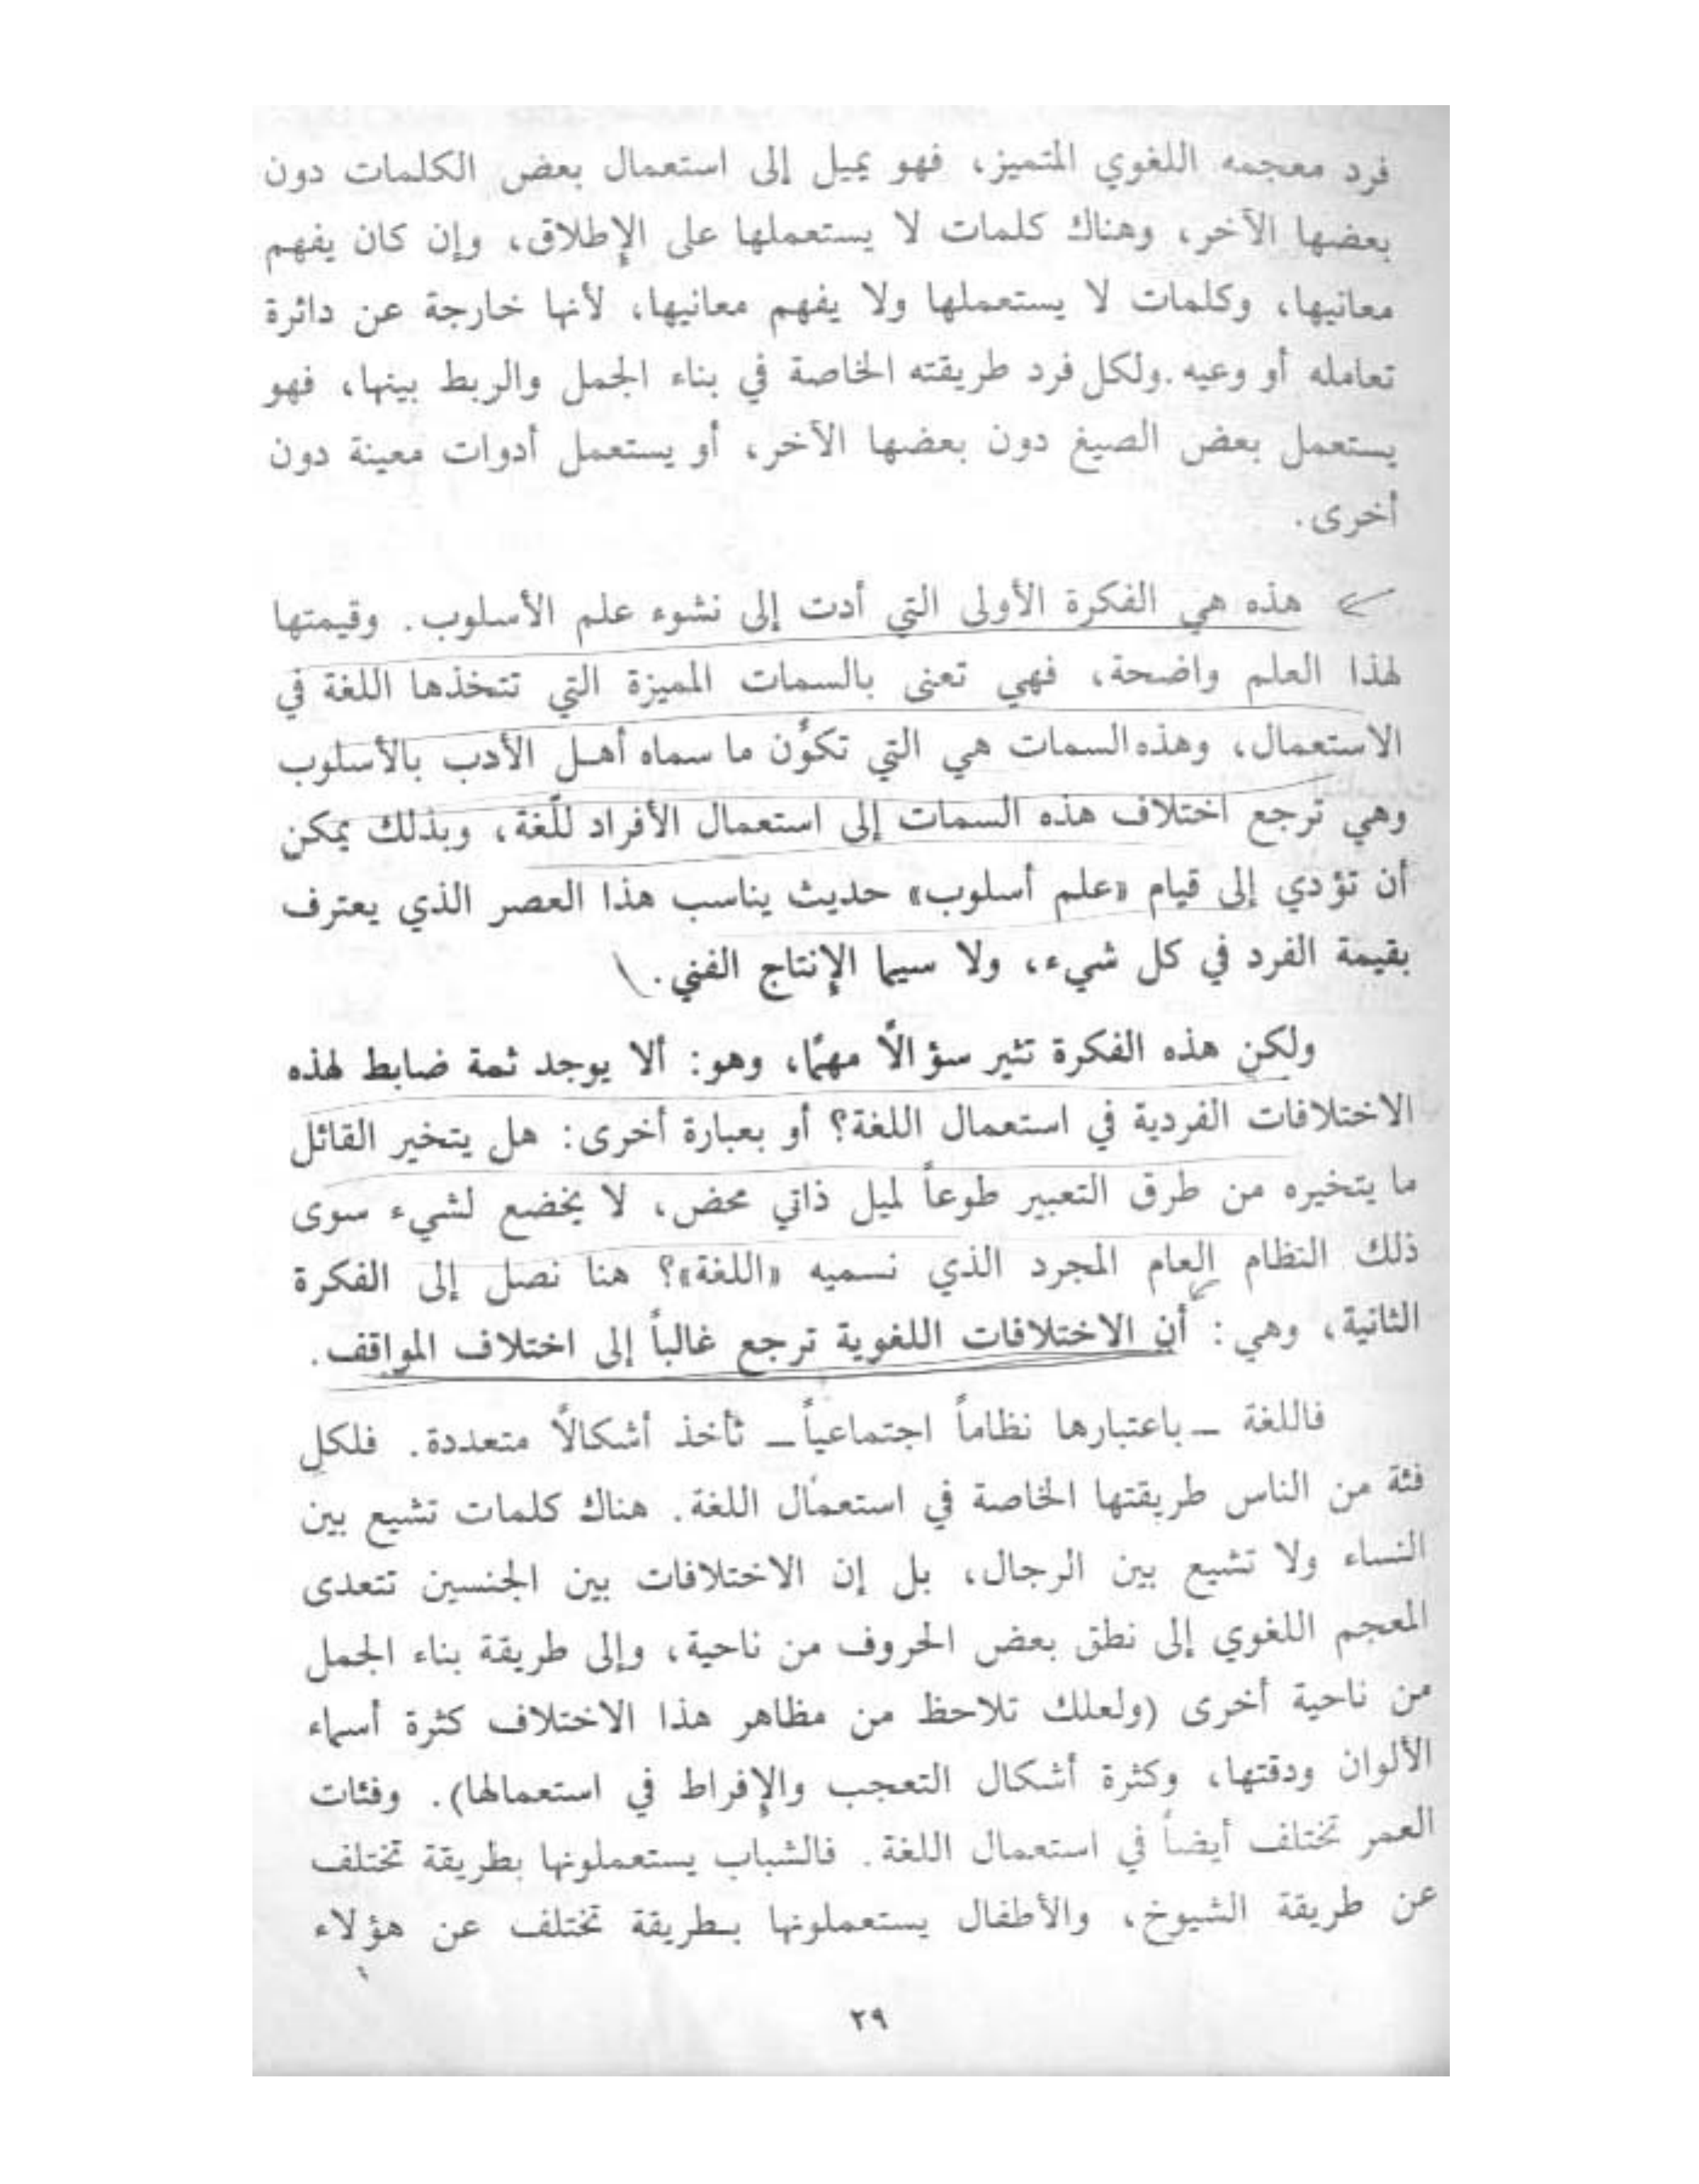 فرد معجمه اللغوي المتميز، فهو يميل إلى استعمال بعض الكلمات دون
بعضها الآخر، وهناك كلمات لا يستعملها على الإطلاق، وإن كان يفهم
معانيها، وكلمات لا يستعملها ولا يفهم معانيها، لأنها خارجة عن دائرة
تعامله أو وعيه. ولكل فرد طريقته الخاصة في بناء الجمل والربط بينها، فهو
يستعمل بعض الصيغ دون بعضها الآخر، أو يستعمل أدوات معينة دون
أخرى.
هذه هي الفكرة الأولى التي أدت إلى نشوء علم الأسلوب. وقيمتها
لهذا العلم واضحة، فهي تعنى بالسمات المميزة التي تتخذها اللغة في
الاستعمال، وهذه السمات هي التي تكوّن ما سماه أهل الأدب بالأسلوب
وهي ترجع اختلاف هذه السمات إلى استعمال الأفراد للّغة، وبذلك يمكن
أن تؤدي إلى قيام «علم أسلوب» حديث يناسب هذا العصر الذي يعترف
بقيمة الفرد في كل شيء، ولا سيما الإنتاج الفني.
ولكن هذه الفكرة تثير سؤالًا مهمًا، وهو: ألا يوجد ثمة ضابط لهذه
الاختلافات الفردية في استعمال اللغة؟ أو بعبارة أخرى: هل يتخير القائل
ما يتخيره من طرق التعبير طوعاً لميل ذاتي محض، لا يخضع لشيء سوى
ذلك النظام العام المجرد الذي نسميه «اللغة»؟ هنا نصل إلى الفكرة
الثانية، وهي: أن الاختلافات اللغوية ترجع غالباً إلى اختلاف المواقف.
فاللغة ــ باعتبارها نظاماً اجتماعياً ــ تأخذ أشكالًا متعددة. فلكل
فئة من الناس طريقتها الخاصة في استعمال اللغة. هناك كلمات تشيع بين
النساء ولا تشيع بين الرجال، بل إن الاختلافات بين الجنسين تتعدى
المعجم اللغوي إلى نطق بعض الحروف من ناحية، وإلى طريقة بناء الجمل
من ناحية أخرى (ولعلك تلاحظ من مظاهر هذا الاختلاف كثرة أسماء
الألوان ودقتها، وكثرة أشكال التعجب والإفراط في استعمالها). وفئات
العمر تختلف أيضاً في استعمال اللغة. فالشباب يستعملونها بطريقة تختلف
عن طريقة الشيوخ، والأطفال يستعملونها بـطريقة تختلف عن هؤلاء
٢٩